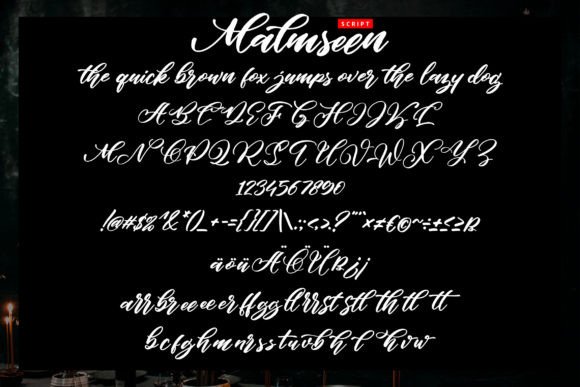 Malmseen SCRIPT
the quick brown fox jumps over the lazy dog
ABCDEFGHIJKL
MNOPQRSTUVWXYZ
1234567890
!@#$%^&*()_+-={}[]|\:;<,>.?
äöüÄÖÜßij
arrbreeeerffggllrrststlthtltt
bcfghmnrsstuvbhlhvw